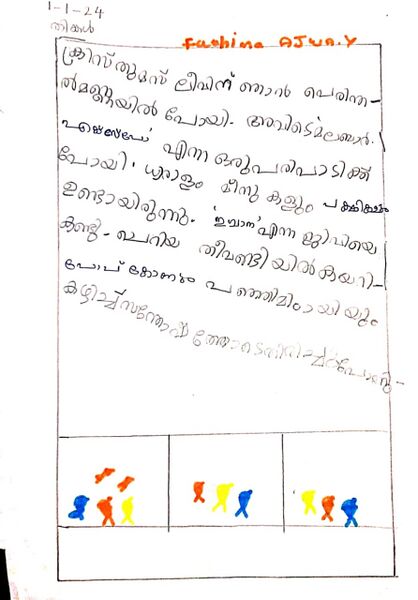 1-1-24
തിങ്കൾ
Fathima AJWA.Y
ക്രിസ്തുമസ് ലീവിന് ഞാൻ പെരിന്ത-
ൽമണ്ണയിൽ പോയി. അവിടെ മലബാർ
എക്സ്പോ എന്ന ഒരു പരിപാടിക്ക്
പോയി. ധാരാളം മീനുകളും പക്ഷികളും
ഉണ്ടായിരുന്നു. എന്ന ജീവിയെ
കണ്ടു. ചെറിയ തീവണ്ടിയിൽ കയറി-
പോപ് കോണും പഞ്ഞിമിഠായിയും
കഴിച്ച് സന്തോഷത്തോടെ